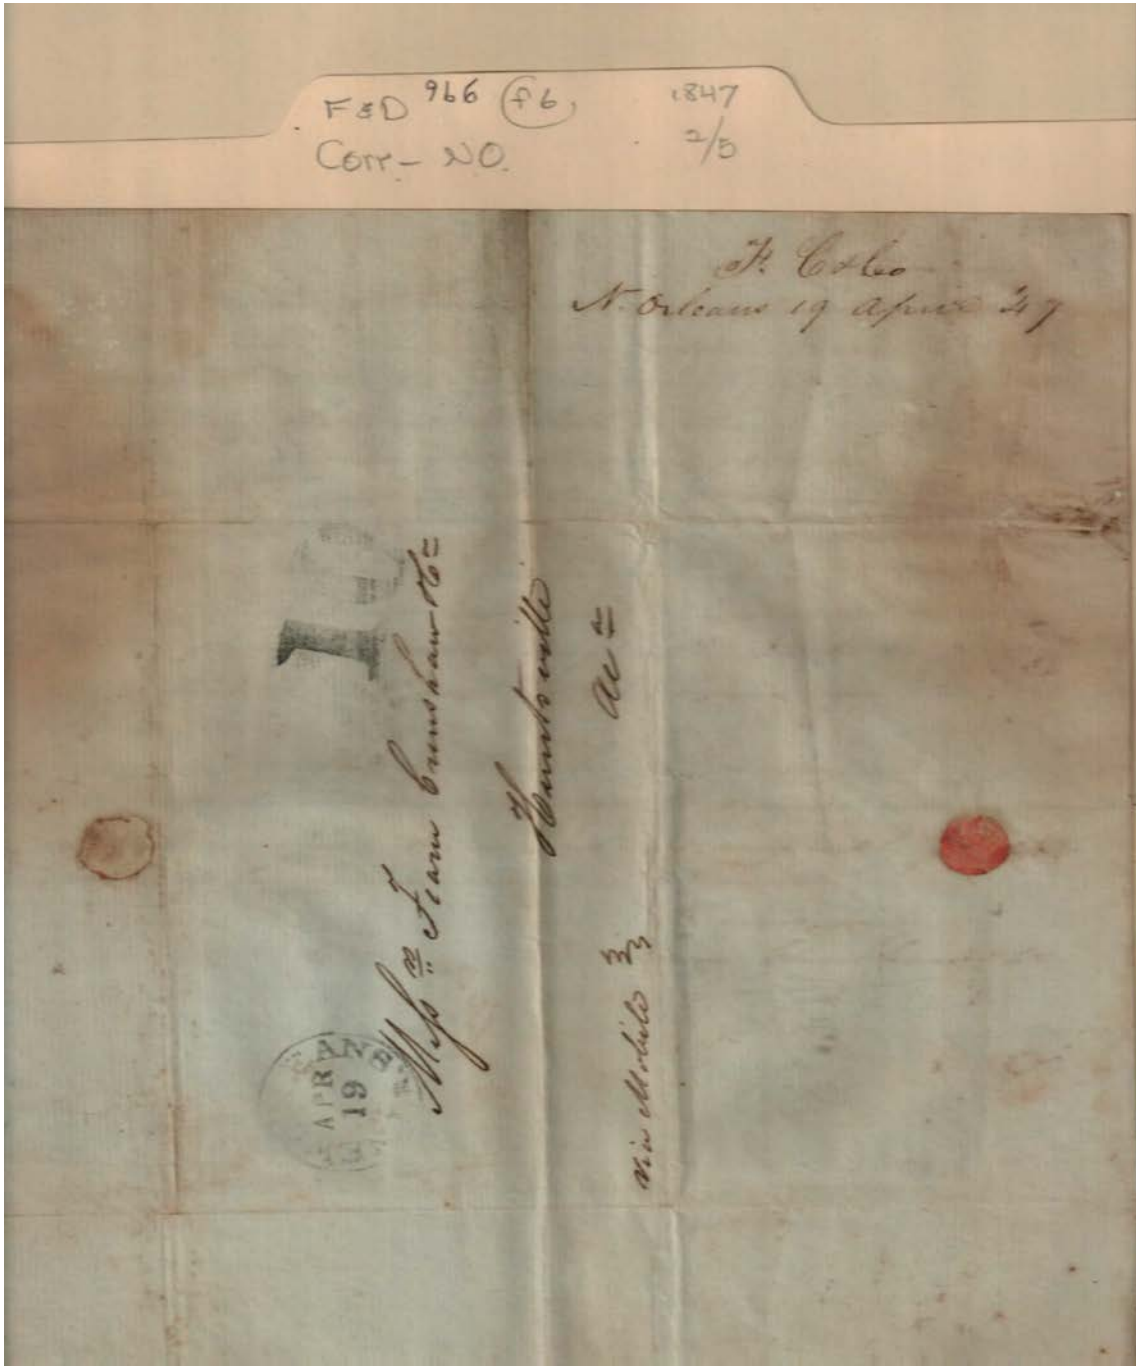 F&D 966 (f6) 1847
Corr- NO. 2/5
F. C & Co
N. Orleans 19 April 47
10
Messrs Fearn Crenshaw & Co
Huntsville
Ala
via Mobile
APR
19